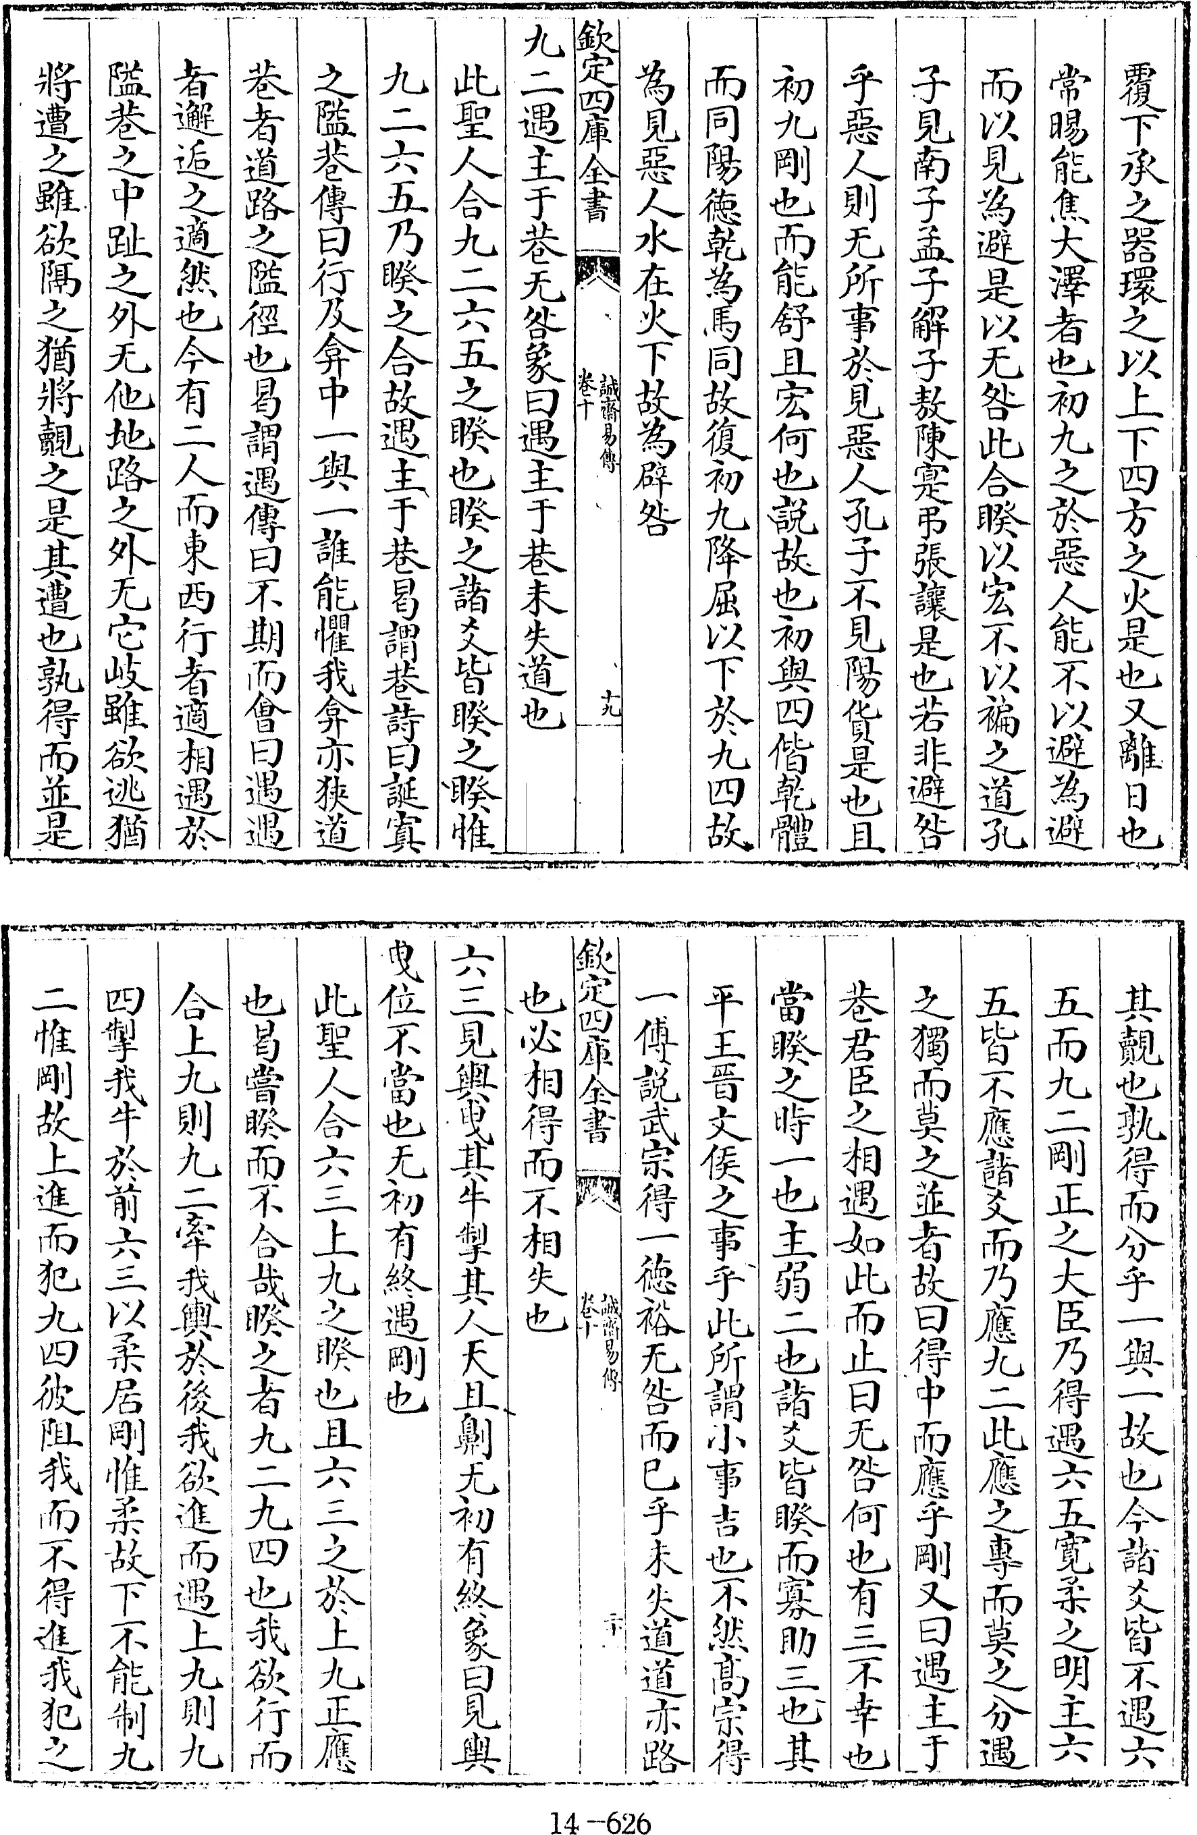 覆下承之器環之以上下四方之火是也又離日也
常暘能焦大澤者也初九之於惡人能不以避為避
而以見為避是以无咎此合睽以宏不以褊之道孔
子見南子孟子解子敖陳寔弔張讓是也若非避咎
乎惡人則无所事於見惡人孔子不見陽貨是也且
初九剛也而能舒且宏何也說故也初與四偕乾體
而同陽德乾為馬同故復初九降屈以下於九四故
為見惡人水在火下故為辟咎
欽定四庫全書
誠齋易傳
卷十
十九
九二遇主于巷无咎象曰遇主于巷未失道也
此聖人合九二六五之睽也睽之諸爻皆睽之睽惟
九二六五乃睽之合故遇主于巷曷謂巷詩曰誕寘
之隘巷傳曰行及弇中一與一誰能懼我弇亦狹道
巷者道路之隘徑也曷謂遇傳曰不期而會曰遇遇
者邂逅之適然也今有二人而東西行者適相遇於
隘巷之中趾之外无他地路之外无它岐雖欲逃猶
將遭之雖欲隔之猶將覿之是其遭也孰得而並是
其覿也孰得而分乎一與一故也今諸爻皆不遇六
五而九二剛正之大臣乃得遇六五寬柔之明主六
五皆不應諸爻而乃應九二此應之專而莫之分遇
之獨而莫之並者故曰得中而應乎剛又曰遇主于
巷君臣之相遇如此而止曰无咎何也有三不幸也
當睽之時一也主弱二也諸爻皆睽而寡助三也其
平王晉文侯之事乎此所謂小事吉也不然高宗得
一傅說武宗得一德裕无咎而已乎未失道道亦路
欽定四庫全書
誠齋易傳
卷十
二十
也必相得而不相失也
六三見輿曳其牛掣其人天且劓无初有終象曰見輿
曳位不當也无初有終遇剛也
此聖人合六三上九之睽也且六三之於上九正應
也曷嘗睽而不合哉睽之者九二九四也我欲行而
合上九則九二牽我輿於後我欲進而遇上九則九
四掣我牛於前六三以柔居剛惟柔故下不能制九
二惟剛故上進而犯九四彼阻我而不得進我犯之
14-626